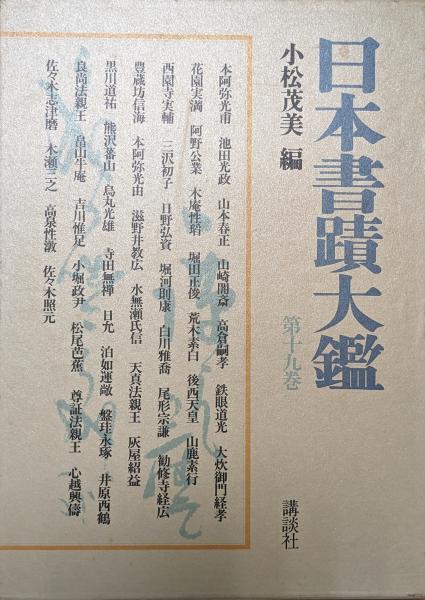 日本書蹟大鑑
第十九巻
小松茂美 編
講談社
本阿弥光甫 池田光政 山本春正 山崎闇斎 高倉嗣孝 鉄眼道光 大炊御門経孝
花園実満 阿野公業 木庵性瑫 堀田正俊 荒木素白 後西天皇 山鹿素行
西園寺実輔 三沢初子 日野弘資 堀河則康 白川雅喬 尾形宗謙 勧修寺経広
豊蔵坊信海 本阿弥光由 滋野井教広 水無瀬氏信 天真法親王 灰屋紹益
黒川道祐 熊沢蕃山 烏丸光雄 寺田無禅 日允 泊如運敞 盤珪永琢 井原西鶴
良尚法親王 畠山牛庵 吉川惟足 小堀政尹 松尾芭蕉 尊証法親王 心越興儔
佐々木志津磨 木瀬三之 高泉性潡 佐々木照元